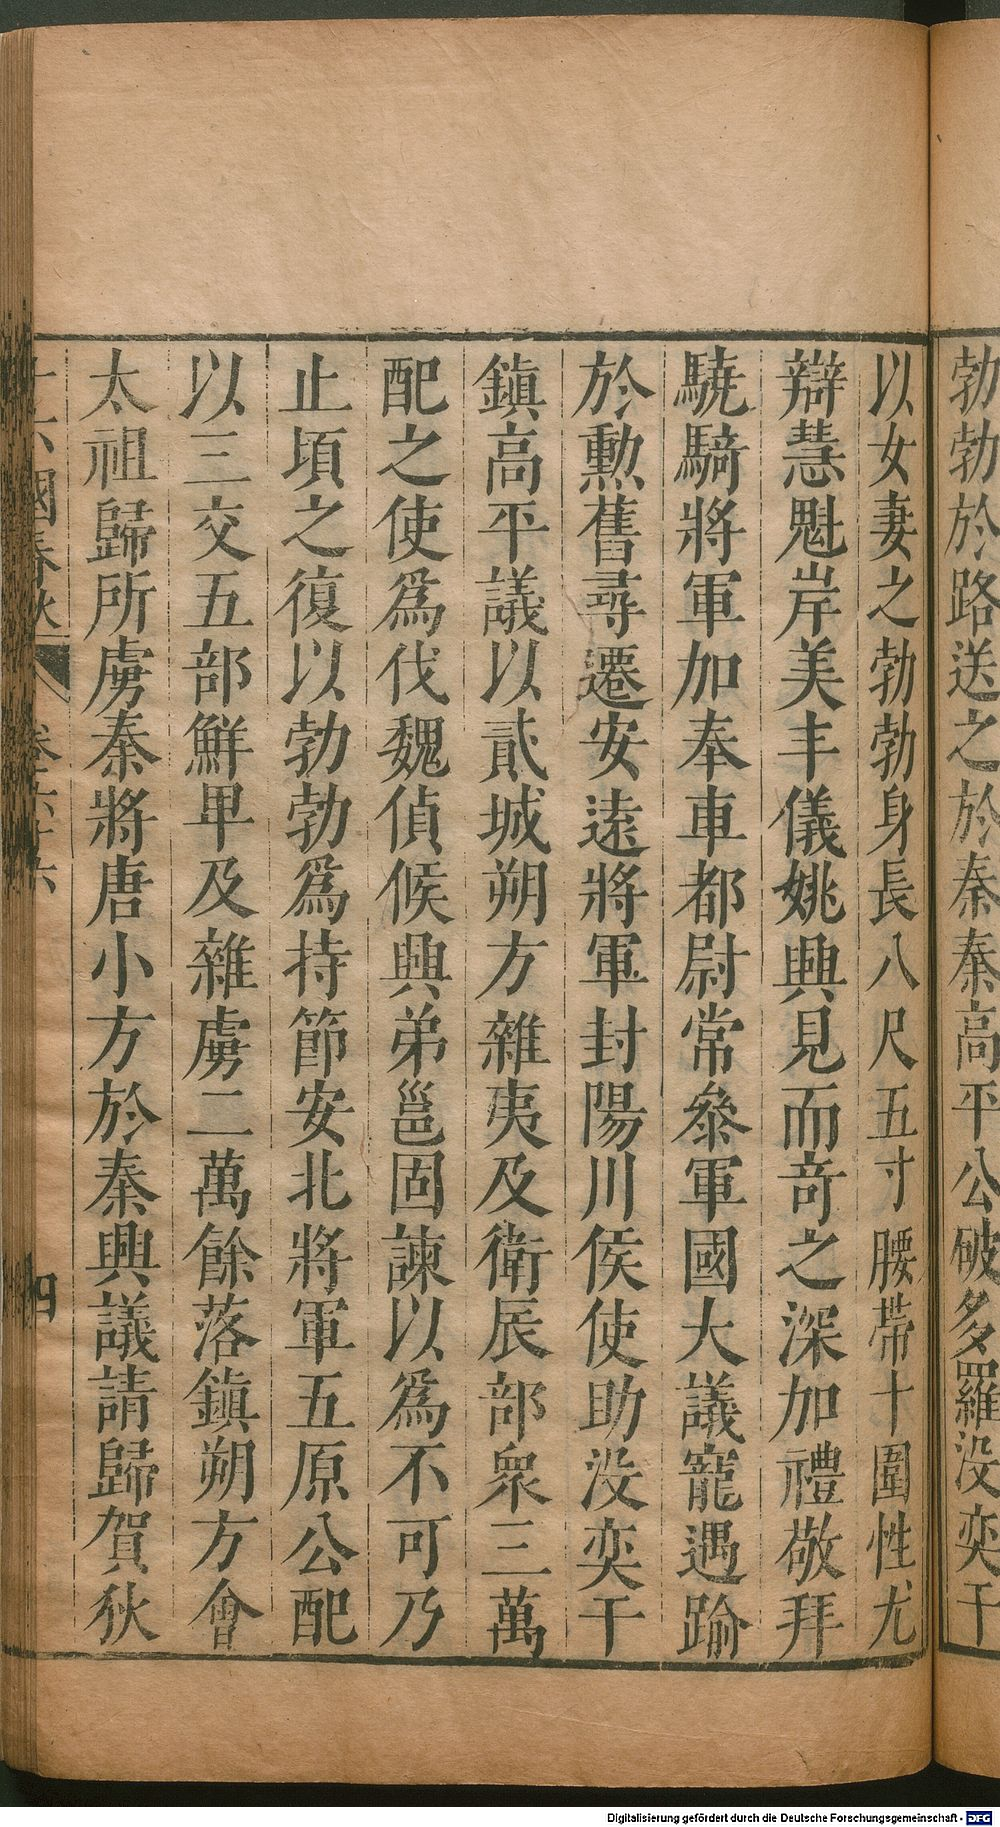 勃勃於路送之於秦秦高平公破多羅没奕干
以女妻之勃勃身長八尺五寸腰帶十圍性尤
辯慧魁岸美丰儀姚興見而奇之深加禮敬拜
驍騎將軍加奉車都尉常叅軍國大議寵遇踰
於勲舊尋遷安遠將軍封陽川侯使助没奕干
鎮高平議以貳城朔方雜夷及衛辰部衆三萬
配之使爲伐魏偵候興弟邕固諫以爲不可乃
止頃之復以勃勃爲持節安北將軍五原公配
以三交五部鮮甲及雜虜二萬餘落鎮朔方會
太祖歸所虜秦將唐小方於秦興議請歸賀狄
十六國春秋 卷六十六 四
Digitalisierung gefördert durch die Deutsche Forschungsgemeinschaft - DFG